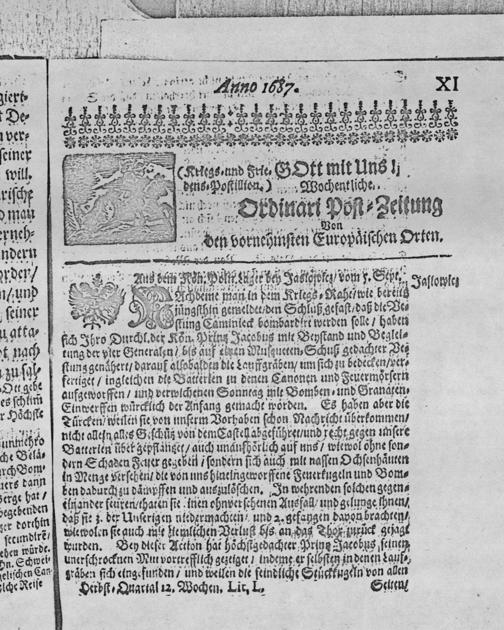 Anno 1687.
XI
(Kriegs- und Frie- GOtt mit Uns!
dens-Postillion.) Wochentliche
Ordinari Post-Zeitung
Von
den vornehmsten Europäischen Orten.
Aus dem Kön. Poln. Lager bey Jaslowiez, vom 5. Sept.
Jaslowiez
NAchdeme man in dem Kriegs-Raht/ wie bereits
jüngsthin gemeldet/ den Schluß gefast/ daß die Ve-
stung Caminieck bombardirt werden solle/ haben
sich Ihro Durchl. der Kön. Prinz Jacobus mit Beystand und Beglei-
tung der vier Generalen/ bis auf einen Musqueten-Schuß gedachter Ve-
stung genähert/ darauf alsobalden die Lauffgräben/ um sich zu bedecken/ ver-
fertiget/ ingleichen die Batterien zu denen Canonen und Feuermörsern
aufgeworffen/ und verwichenen Sonntag mit Bomben- und Granaten-
Einwerffen würcklich der Anfang gemacht worden. Es haben aber die
Türcken/ weilen sie von unserm Vorhaben schon Nachricht überkommen/
nicht allein alles Geschütz von dem Castell abgeführet/ und recht gegen unsere
Batterien über gepflantzet/ auch unaufhörlich auf uns/ wiewol ohne son-
dern Schaden Feuer gegeben/ sondern sich auch mit nassen Ochsenhäuten
in Menge versehen/ die von uns hineingeworffene Feuerkugeln und Bom-
ben dadurch zu dämpffen und auszulöschen. In wehrenden solchen gegen-
einander feuren/ thaten sie einen ohnversehenen Ausfall/ und gelunge ihnen/
daß sie 3. der Unserigen niedermachten/ und 2. gefangen davon brachten/
wiewolen sie auch mit ziemlichen Verlust bis an das Thor zurück gejagt
wurden. Bey dieser Action hat höchstgedachter Prinz Jacobus seinen
unerschrocknen Mut vortrefflich gezeiget/ indeme er selbsten in denen Lauf-
gräben sich eingefunden/ und weilen die feindliche Stückkugeln von allen
Herbst-Quartal 12. Wochen. Lit. L.
Seiten/